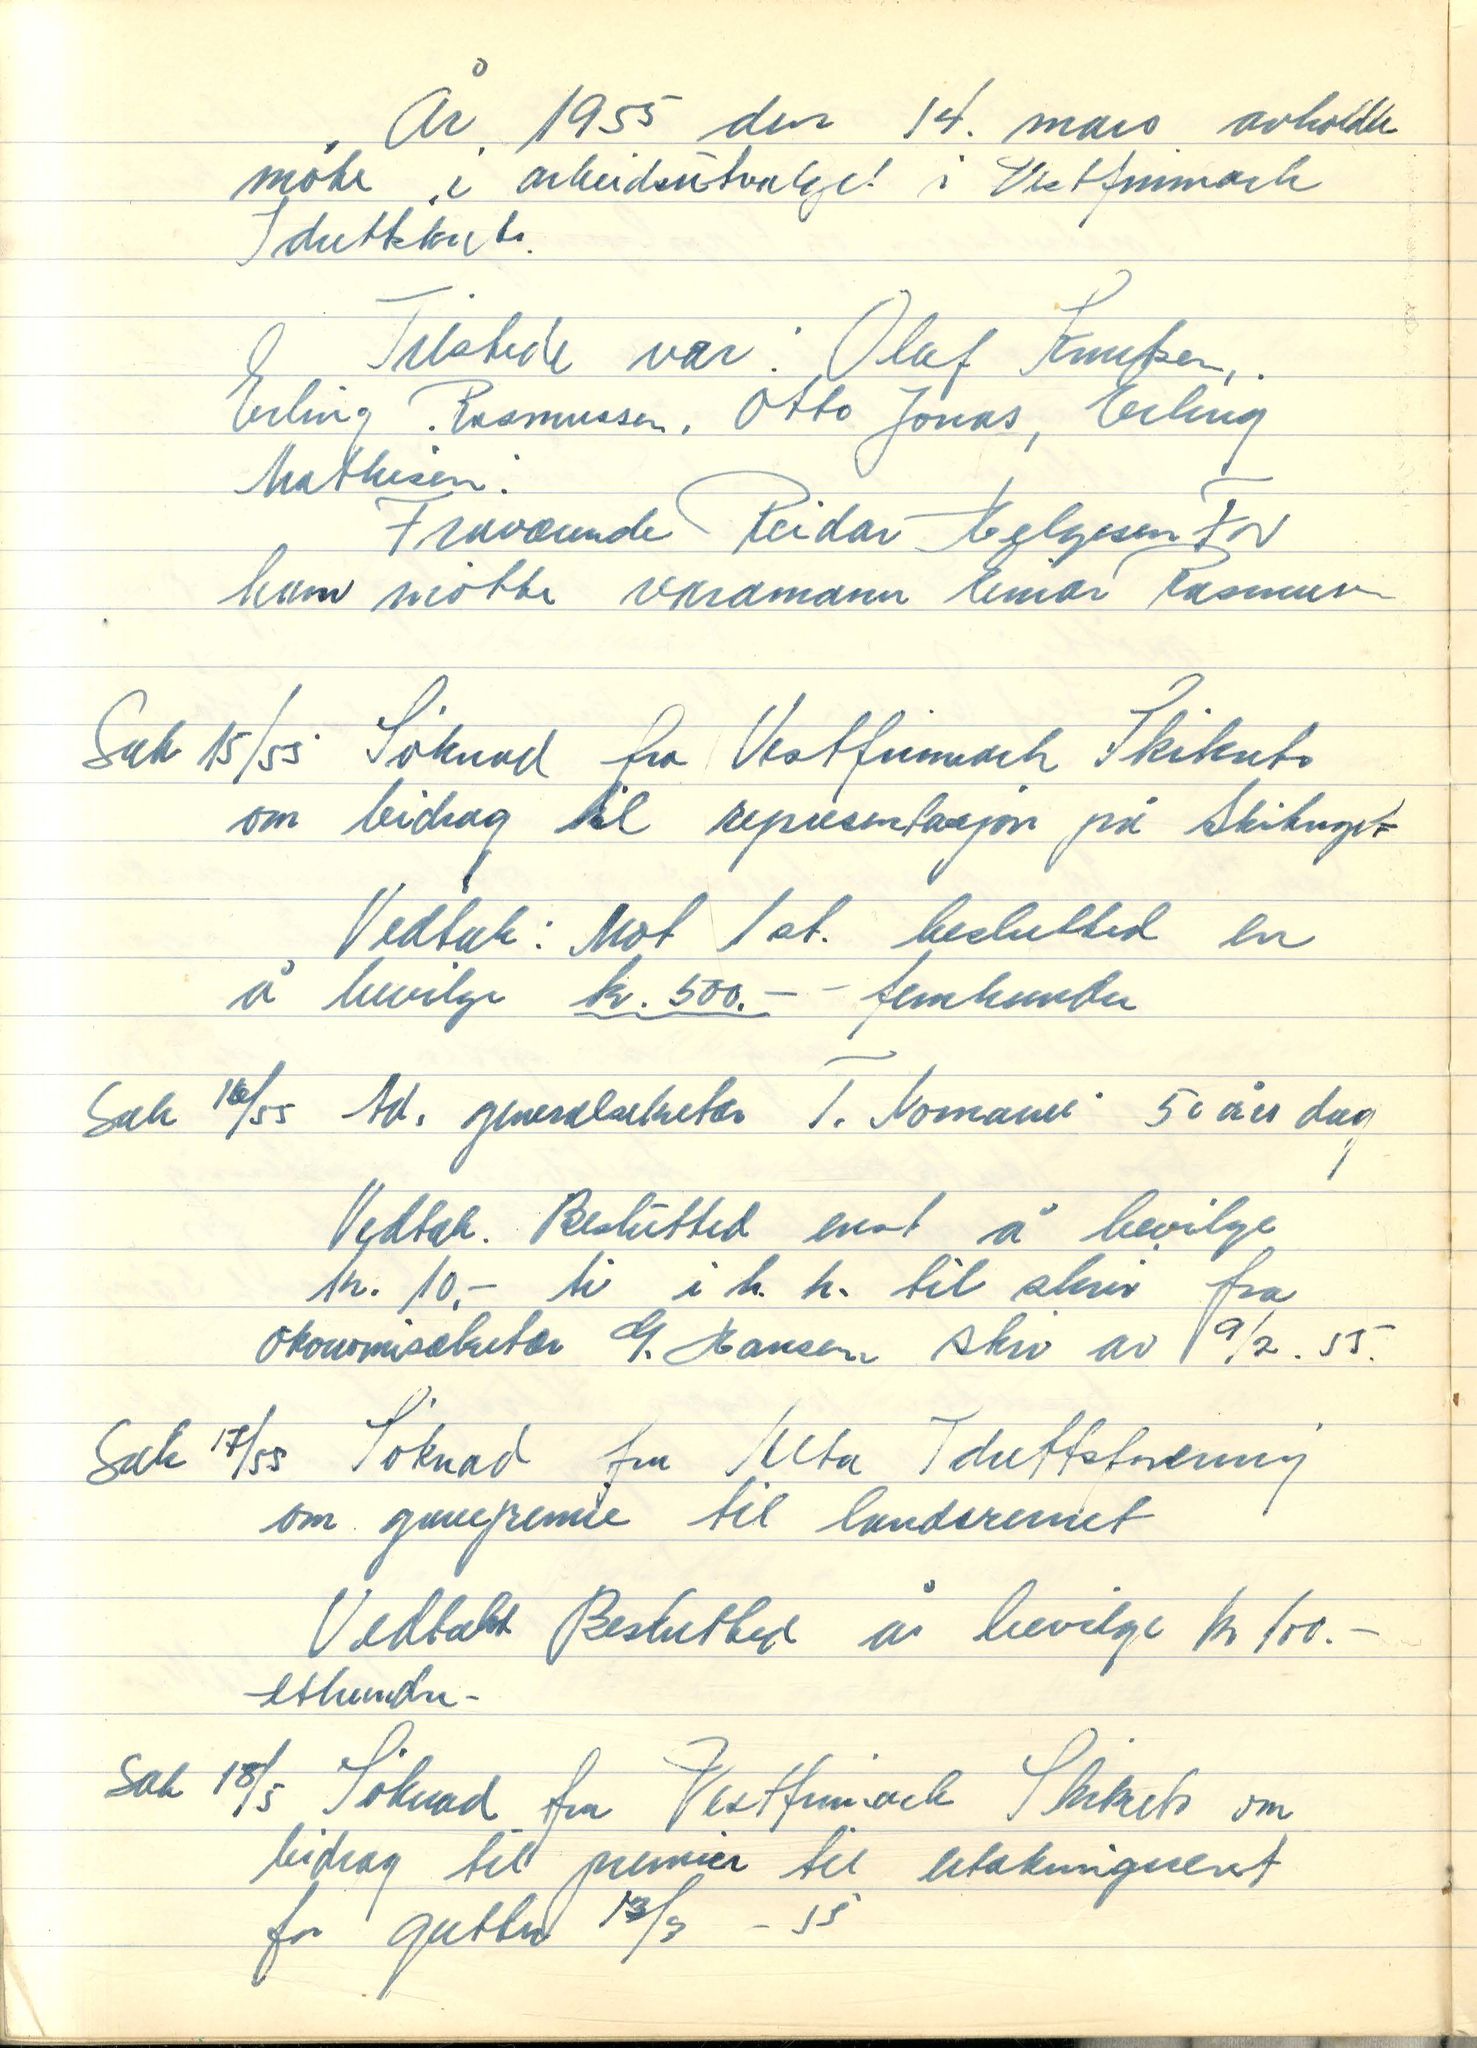 År 1955 den 14. mars avholdtes
møte i arbeidsutvalget i Vestfinmark
Idrettskrets.
Tilstede var: Olaf Knutsen,
Erling Rasmussen, Otto Jonas, Erling
Mathisen.
Fraværende Reidar Helgesen For
ham møtte varamann Rasmussen
Sak 15/55 Söknad fra Vestfinmark Skikrets
om bidrag til representasjon på Skitinget
Vedtak: Mot 1 st. beslutted en
å bevilge kr. 500.- - femhundre
Sak 16/55 Ad. generalsekretær T. 50 års dag
Vedtak. Beslutted enst å bevilge
kr. 10,- ti i h. h. til skriv fra
økonomisekretær G. Hansen skriv av 9/2. 55.
Sak 17/55 Söknad fra Alta Idrettsforening
om gavepremie til landsrennet
Vedtak Beslutted å bevilge kr 100.-
ethundre-
Sak 18/5 Söknad fra Vestfinmark Skikrets om
bidrag til premier til uttakningsrent
for gutter 13/3 - 55